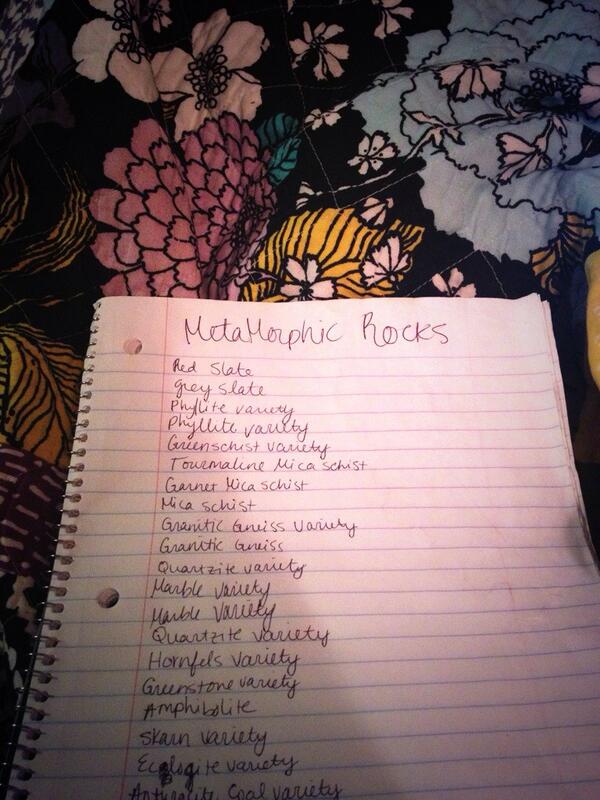 MetaMorphic Rocks
Red Slate
grey slate
Phyllite variety
Phyllite variety
Greenschist variety
Tourmaline Mica schist
Garnet Mica schist
Mica schist
Granitic Gneiss Variety
Granitic Gneiss
Quartzite variety
Marble variety
Marble Variety
Quartzite variety
Hornfels variety
Greenstone variety
Amphibolite
Skarn variety
Ecologite variety
Anthracite Coal variety